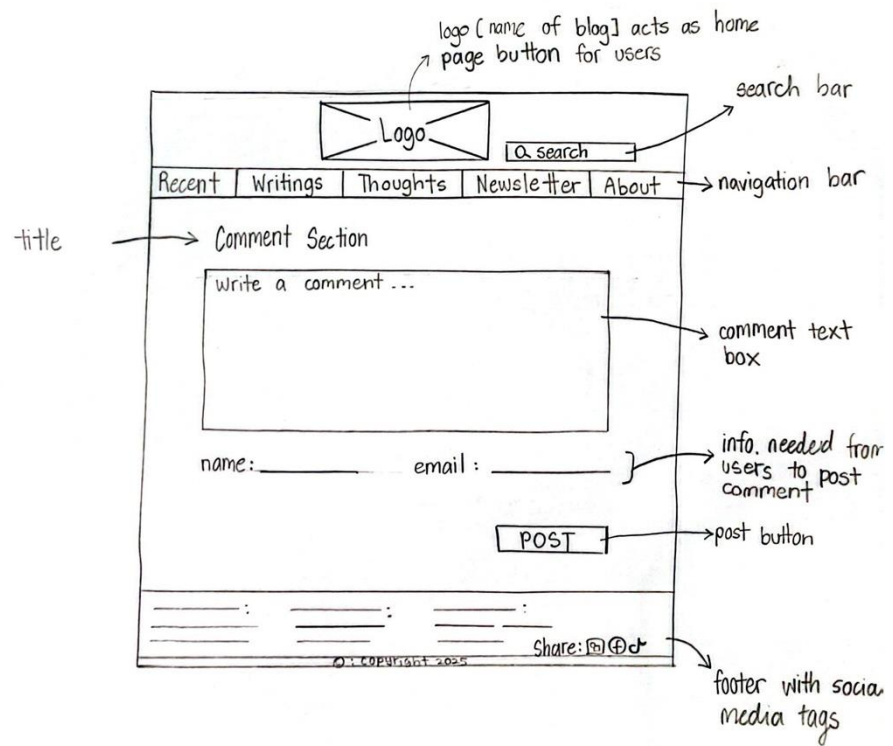 logo [name of blog] acts as home
page button for users
search bar
Logo
search
Recent | Writings | Thoughts | Newsletter | About
navigation bar
title
Comment Section
write a comment ...
comment text
box
name: email :
info. needed from
users to post
comment
POST
post button
Share:
©: copyright 2025
footer with socia
media tags